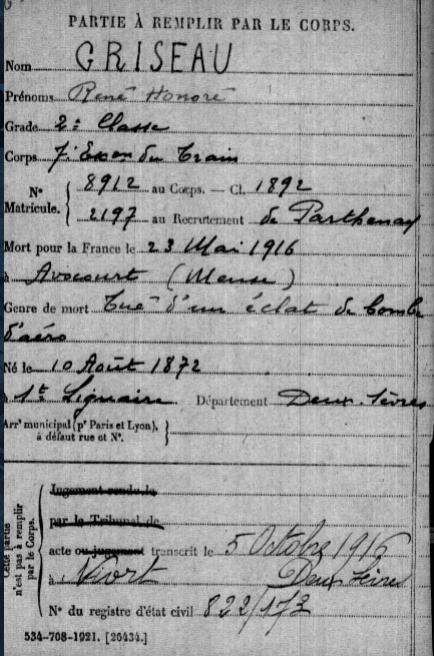 PARTIE À REMPLIR PAR LE CORPS.
Nom GRISEAU
Prénoms René Honoré
Grade 2e Classe
Corps 7e Escon du Train
N° Matricule. 8912 au Corps. — Cl. 1892
2197 au Recrutement de Parthenay
Mort pour la France le 23 Mai 1916
à Avocourt (Meuse)
Genre de mort Tué d'un éclat de bombe
d'aéro
Né le 10 Août 1872
à St Liguaire Département Deux-Sèvres
Arrt municipal (pr Paris et Lyon),
à défaut rue et N°.
Cette partie n'est pas à remplir par le Corps.
Jugement rendu le
par le Tribunal de
acte ou jugement transcrit le 5 Octobre 1916
à Niort Deux Sèvres
N° du registre d'état civil 822/173
534-708-1921. [26434.]